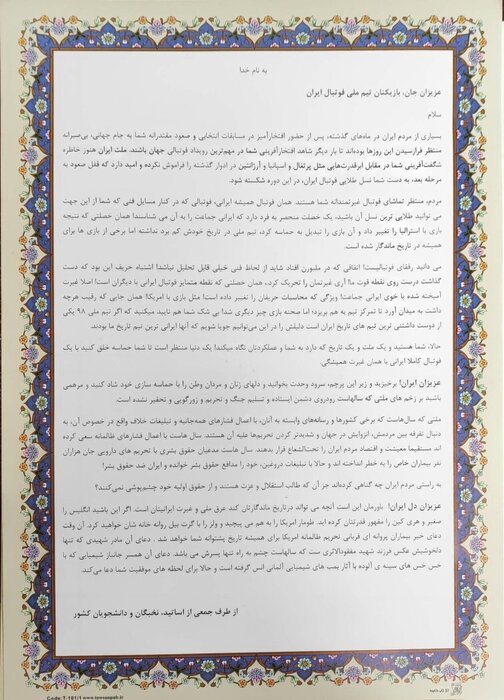 به نام خدا
عزیزان جان، بازیکنان تیم ملی فوتبال ایران
سلام
بسیاری از مردم ایران در ماه‌های گذشته، پس از حضور افتخارآمیز در مسابقات انتخابی و صعود مقتدرانه شما به جام جهانی، بی‌صبرانه
منتظر فرارسیدن این روزها بوده‌اند تا بار دیگر شاهد افتخارآفرینی شما در مهم‌ترین رویداد فوتبالی جهان باشند. ملت ایران هنوز خاطره
شگفت‌آفرینی شما در مقابل ابرقدرت‌هایی مثل پرتغال و اسپانیا و آرژانتین در ادوار گذشته را فراموش نکرده و امید دارد که قفل صعود به
مرحله بعد، به دست شما نسل طلایی فوتبال ایران، در این دوره شکسته شود.
مردم، منتظر تماشای فوتبال غیرتمندانه شما هستند. همان فوتبال همیشه ایرانی، فوتبالی که در کنار مسایل فنی که شما از این جهت
می توانید طلایی ترین نسل آن باشید، یک خصلت منحصر به فرد دارد که ایرانی جماعت را به آن می شناسند! همان خصلتی که نتیجه
بازی با استرالیا را تغییر داد و آن بازی را تبدیل به حماسه کرد، تیم ملی در تاریخ خودش کم برد نداشته اما برخی از بازی ها برای
همیشه در تاریخ ماندگار شده است.
می دانید رفقای فوتبالیست! اتفاقی که در ملبورن افتاد شاید از لحاظ فنی خیلی قابل تحلیل نباشد! اشتباه حریف این بود که دست
گذاشت درست روی نقطه قوت ما! آری غیرتمان را تحریک کرد، همان خصلتی که نقطه متمایز فوتبال ایرانی با دیگران است! اصلا غیرت
آمیخته شده با خوی ایرانی جماعت! ویژگی که محاسبات حریفان را تغییر داده است! مثل بازی با امریکا! همان جایی که رقیب هرچه
داشت به میدان آورد تا تمرکز تیم به هم بریزد؛ اما صحنه بازی چیز دیگری شد! بی شک شما هم تایید میکنید که اگر تیم ملی ۹۸ یکی
از دوست داشتنی ترین تیم های تاریخ ایران است دلیلش را در این می‌توانیم جویا شویم که آنها ایرانی ترین تیم تاریخ ما بودند.
حالا، شما هستید و یک ملت و یک تاریخ که دارد به شما و عملکردتان نگاه میکند! یک دنیا منتظر است تا شما حماسه خلق کنید با یک
فوتبال کاملا ایرانی با همان غیرت همیشگی.
عزیزان ایران! برخیزید و زیر این پرچم، سرود وحدت بخوانید و دلهای زنان و مردان وطن را با حماسه سازی خود شاد کنید و مرهمی
باشید بر زخم های ملتی که سالهاست رودرروی دشمن ایستاده و تسلیم جنگ و تحریم و زورگویی و تحقیر نشده است.
ملتی که سال‌هاست که برخی کشورها و رسانه‌های وابسته به آنان، با اعمال فشارهای همه‌جانبه و تبلیغات خلاف واقع در خصوص آن، به
دنبال تفرقه بین مردمش، انزوایش در جهان و شدیدتر کردن تحریم‌ها علیه آن هستند. سال هاست با اعمال فشارهای ظالمانه سعی کرده
اند مستقیما معیشت و اقتصاد مردم ایران را تحت‌الشعاع قرار بدهند. سال هاست مدعیان حقوق بشری با تحریم های دارویی جان هزاران
نفر بیماران خاص را به خطر انداخته اند و حالا با تبلیغات دروغین، خود را مدافع حقوق بشر خوانده و ایران ضد حقوق بشر!
به راستی مردم ایران چه گناهی کرده‌اند جز آن که طالب استقلال و عزت هستند و از حقوق اولیه خود چشم‌پوشی نمی‌کنند؟
عزیزان دل ایران! باورمان این است آنچه می تواند درتاریخ ماندگارتان کند عرق ملی و غیرت ایرانیتان است. اگر این باشید انگلیس را
صغیر و هری کین را مقهور قدرتتان کرده اید. طومار امریکا را به هم می پیچید و ولز را با گرث بیل روانه خانه شان خواهید کرد. آن وقت
دعای خیر بیماران پروانه ای قربانی تحریم ظالمانه امریکا برای همیشه تاریخ پشتوانه شما خواهد شد. دعای آن مادر شهیدی که تنها
دلخوشیش عکس فرزند شهید مفقودالاثری ست که سالهاست چشم به راه تنها پسرش می باشد. دعای آن همسر جانباز شیمیایی که با
خس خس های سینه ی آلوده با آثار بمب های شیمیایی آلمانی انس گرفته است و حالا برای لحظه های موفقیت شما دعا می‌کند.
از طرف جمعی از اساتید، نخبگان و دانشجویان کشور
Code: T-101/1 www.towsaapub.ir